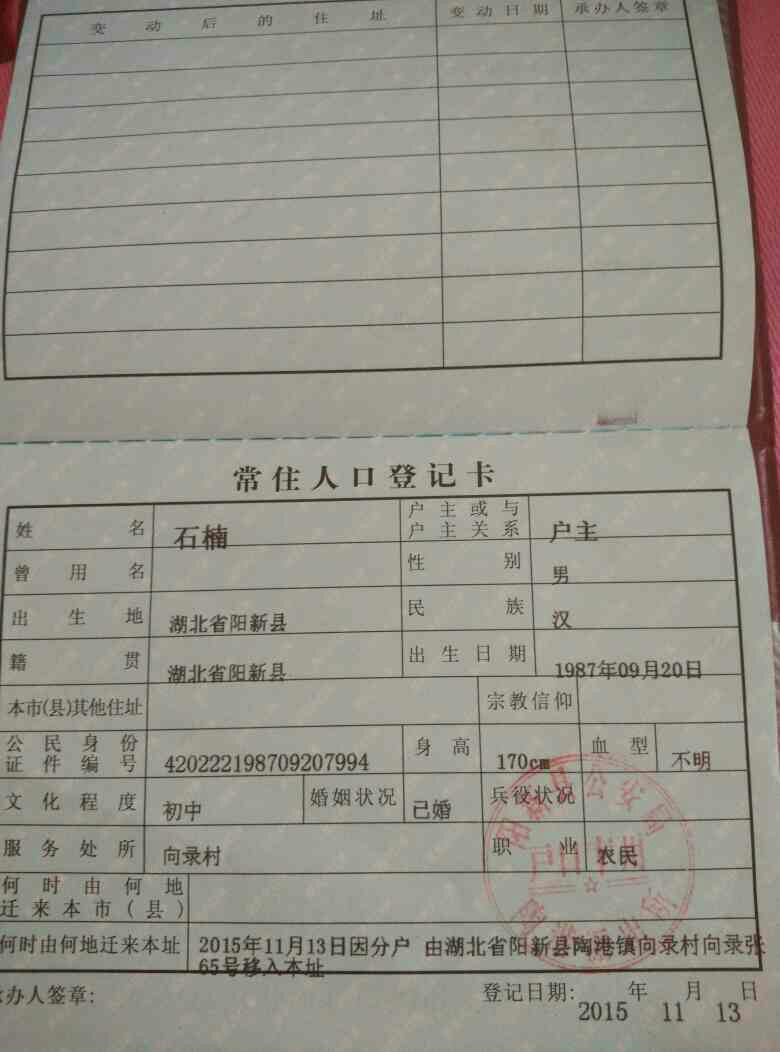 变动后的住址 变动日期 承办人签章
常住人口登记卡
姓名 石楠 户主或与户主关系 户主
曾用名 性别 男
出生地 湖北省阳新县 民族 汉
籍贯 湖北省阳新县 出生日期 1987年09月20日
本市(县)其他住址 宗教信仰
公民身份证件编号 420222198709207994 身高 170cm 血型 不明
文化程度 初中 婚姻状况 已婚 兵役状况
服务处所 向录村 职业 农民
何时由何地迁来本市(县)
何时由何地迁来本址 2015年11月13日因分户 由湖北省阳新县陶港镇向录村向录张
65号移入本址
承办人签章: 登记日期: 2015年11月13日